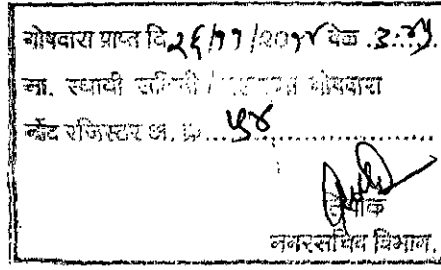 गोषवारा प्राप्त दि. २६/११/२०१४ वेळ .३:४५
मा. स्थायी समिती / गोषवारा
नोंद रजिस्टर अ. क्र....५४..............
नगरसचिव विभाग.